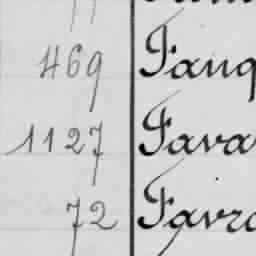 469 Fauq
1127 Fava
72 Favr